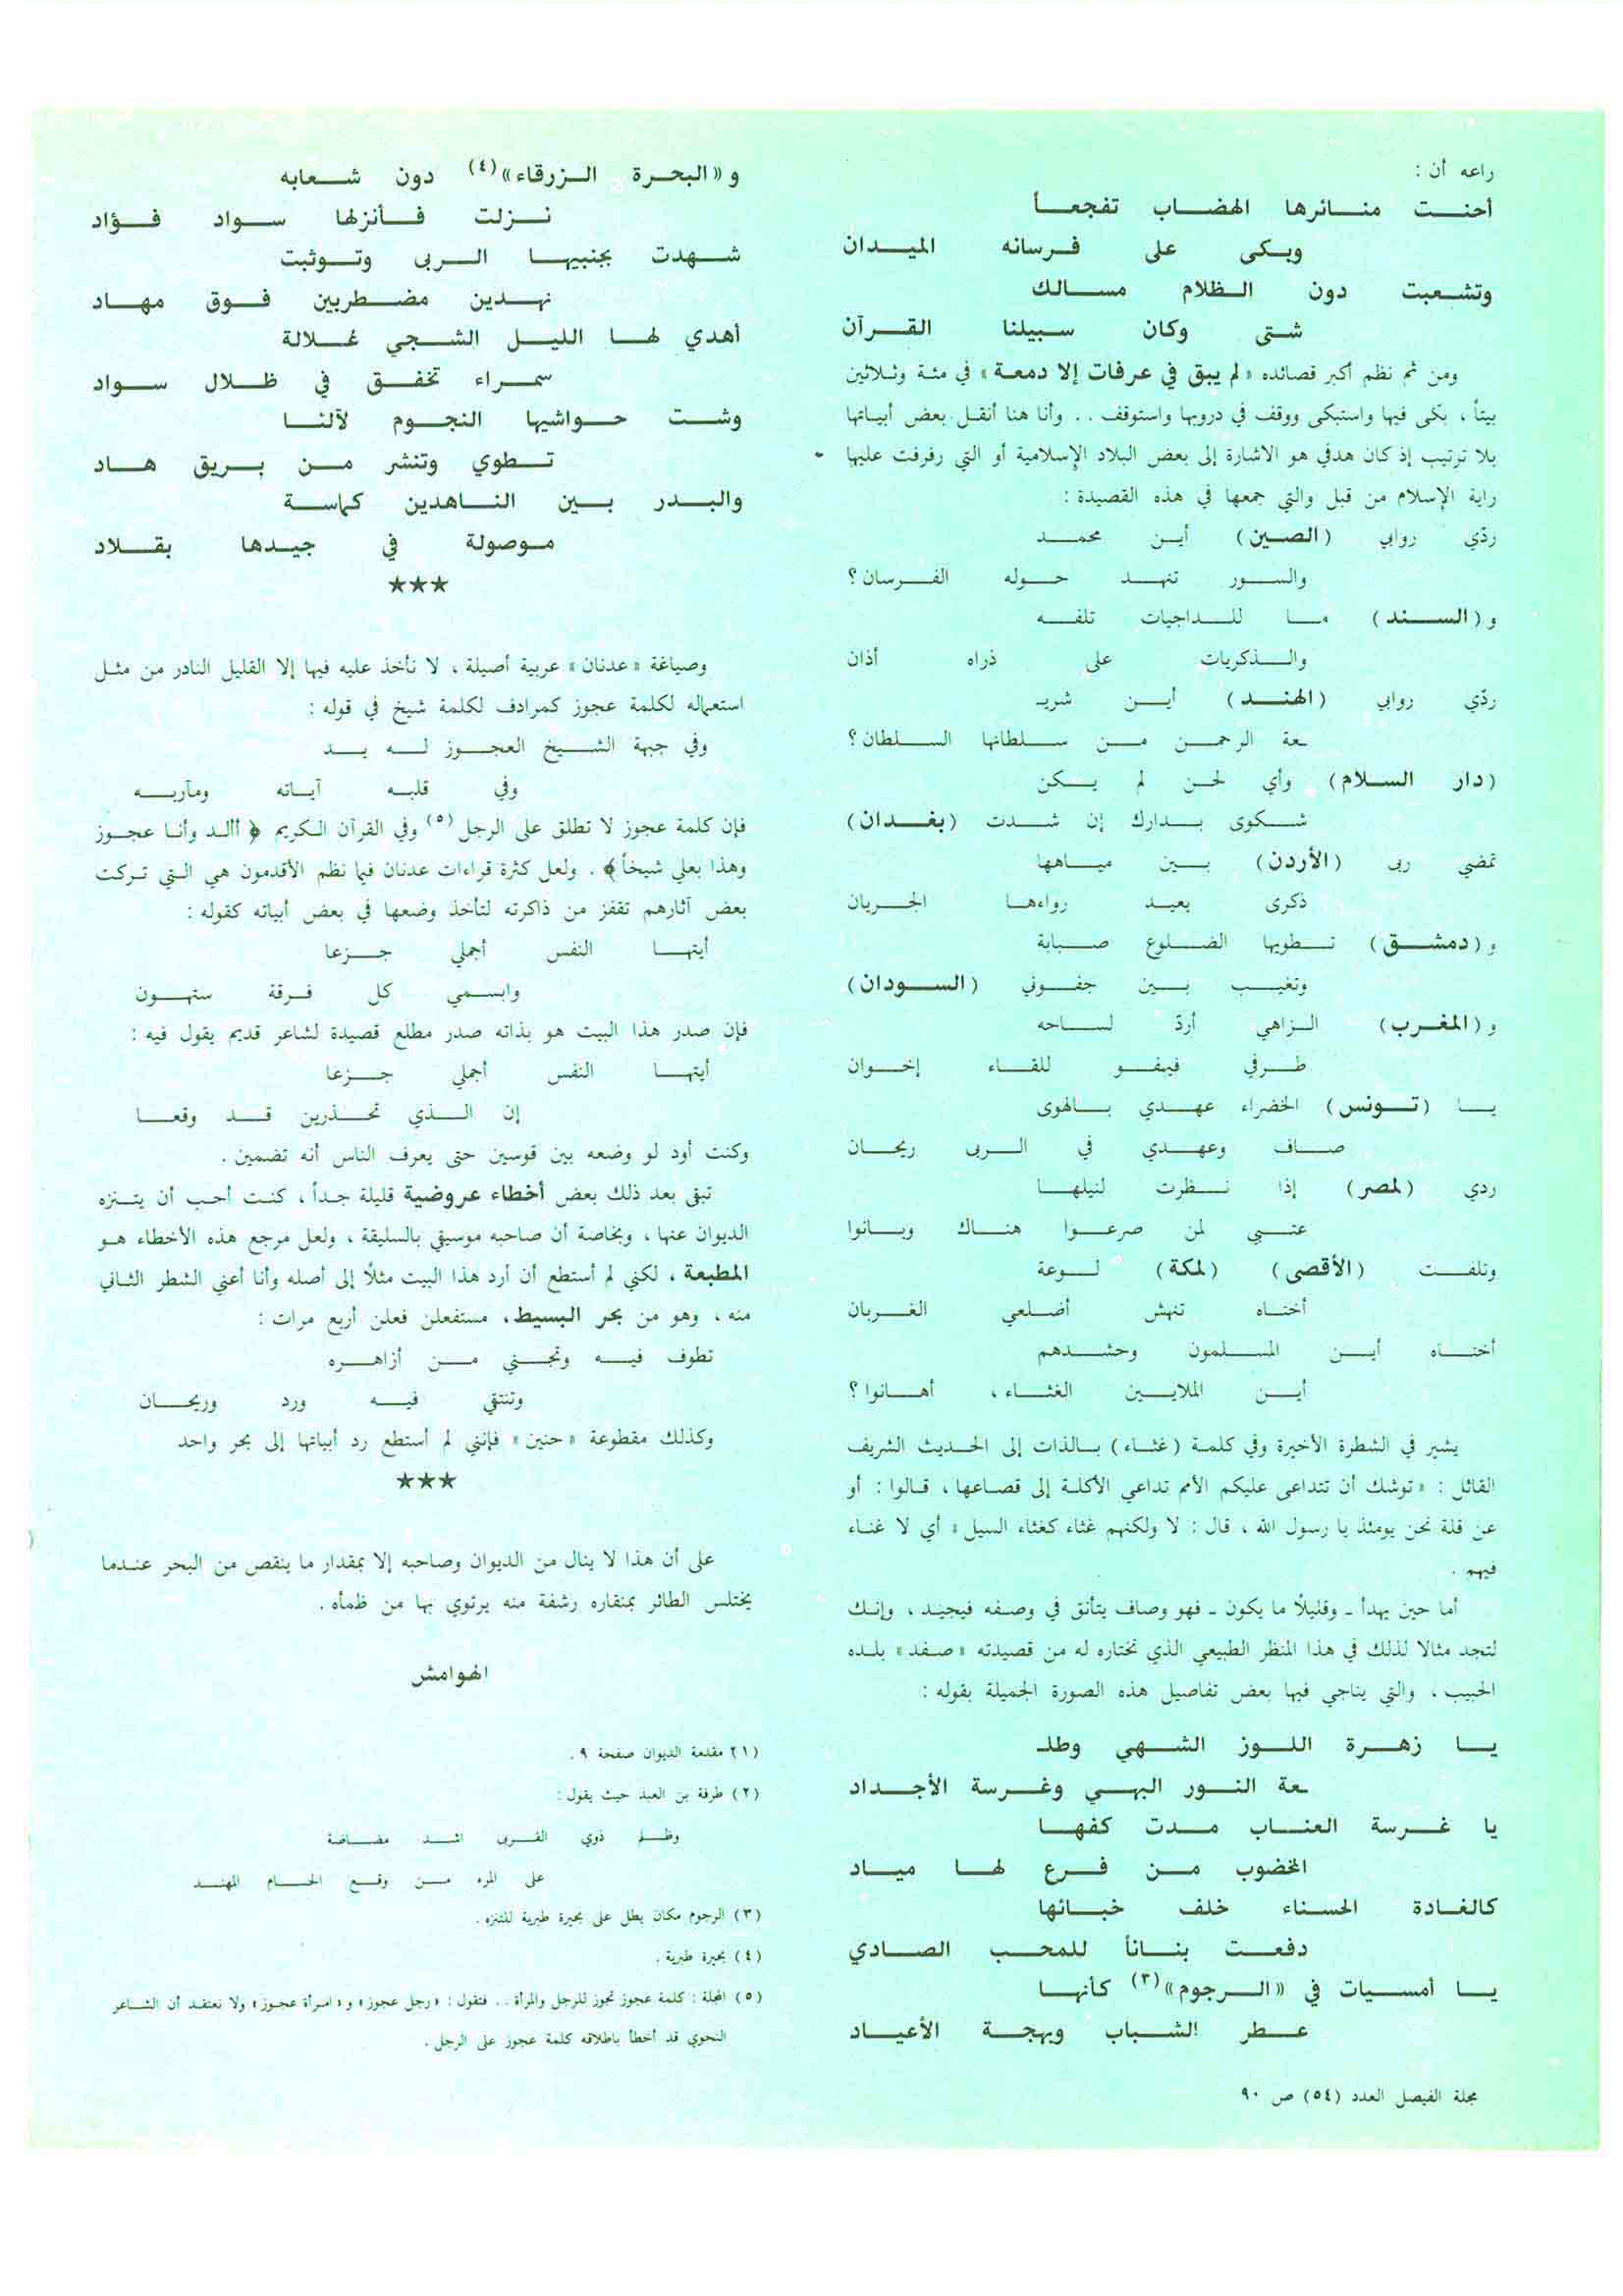 راعه أن :
أحنت منائرها الهضاب تفجعاً
وبكى على فرسانه الميدان
وتشعبت دون الظلام مسالك
شتى وكان سبيلنا القرآن
ومن ثم نظم أكبر قصائده « لم يبق في عرفات إلا دمعة » في مئة وثلاثين
بيتاً ، بكى فيها واستبكى ووقف في دروبها واستوقف .. وأنا هنا أنقل بعض أبياتها
بلا ترتيب إذ كان هدفي هو الاشارة إلى بعض البلاد الإسلامية أو التي رفرفت عليها
راية الإسلام من قبل والتي جمعها في هذه القصيدة :
ردّي روابي (الصين) أين محمد
والسور تنهد حوله الفرسان ؟
و (السند) ما للداجيات تلفه
والذكريات على ذراه أذان
ردّي روابي (الهند) أين شريـ
ـعة الرحمن من سلطانها السلطان ؟
(دار السلام) وأي لحن لم يكن
شكوى بدارك إن شدت (بغدان)
تمضي ربى (الأردن) بين مياهها
ذكرى بعيد رواءها الجريان
و (دمشق) تطويها الضلوع صبابة
وتغيب بين جفوني (السودان)
و (المغرب) الزاهي أردّ لساحه
طرفي فيهفو للقاء إخوان
يا (تونس) الخضراء عهدي بالهوى
صاف وعهدي في الربى ريحان
ردي (لمصر) إذا نظرت لنيلها
عتبي لمن صرعوا هناك وبانوا
وتلفت (الأقصى) (لمكة) لوعة
أختاه تنهش أضلعي الغربان
أختاه أين المسلمون وحشدهم
أين الملايين الغثاء ، أهانوا ؟
يشير في الشطرة الأخيرة وفي كلمة (غثاء) بالذات إلى الحديث الشريف
القائل : « توشك أن تتداعى عليكم الأمم تداعي الأكلة إلى قصاعها ، قالوا : أو
عن قلة نحن يومئذ يا رسول الله ، قال : لا ولكنهم غثاء كغثاء السيل » أي لا غناء
فيهم .
أما حين يهدأ ـ وقليلاً ما يكون ـ فهو وصاف يتأنق في وصفه فيجيد ، وإنك
لتجد مثالا لذلك في هذا المنظر الطبيعي الذي نختاره له من قصيدته « صفد » بلده
الحبيب ، والتي يناجي فيها بعض تفاصيل هذه الصورة الجميلة بقوله :
يا زهرة اللوز الشهي وطلـ
ـعة النور البهي وغرسة الأجداد
يا غرسة العناب مدت كفها
المخضوب من فرع لها مياد
كالغادة الحسناء خلف خبائها
دفعت بناناً للمحب الصادي
يا أمسيات في « الرجوم »(٣) كأنها
عطر الشباب وبهجة الأعياد
و « البحرة الزرقاء »(٤) دون شعابه
نزلت فأنزلها سواد فؤاد
شهدت بجنبيها الربى وتوثبت
نهدين مضطربين فوق مهاد
أهدي لها الليل الشجي غلالة
سمراء تخفق في ظلال سواد
وشت حواشيها النجوم لآلئا
تطوي وتنشر من بريق هاد
والبدر بين الناهدين كماسة
موصولة في جيدها بقلاد
★★★
وصياغة « عدنان » عربية أصيلة ، لا نأخذ عليه فيها إلا القليل النادر من مثل
استعماله لكلمة عجوز كمرادف لكلمة شيخ في قوله :
وفي جبهة الشيخ العجوز له يد
وفي قلبه آياته ومآربه
فإن كلمة عجوز لا تطلق على الرجل(٥) وفي القرآن الكريم ﴿ أألد وأنا عجوز
وهذا بعلي شيخاً ﴾ . ولعل كثرة قراءات عدنان فيما نظم الأقدمون هي التي تركت
بعض آثارهم تقفز من ذاكرته لتأخذ وضعها في بعض أبياته كقوله :
أيتها النفس أجملي جزعا
وابسمي كل فرقة ستهون
فإن صدر هذا البيت هو بذاته صدر مطلع قصيدة لشاعر قديم يقول فيه :
أيتها النفس أجملي جزعا
إن الذي تحذرين قد وقعا
وكنت أود لو وضعه بين قوسين حتى يعرف الناس أنه تضمين .
تبقى بعد ذلك بعض أخطاء عروضية قليلة جداً ، كنت أحب أن يتنزه
الديوان عنها ، وبخاصة أن صاحبه موسيقي بالسليقة ، ولعل مرجع هذه الأخطاء هو
المطبعة ، لكني لم أستطع أن أرد هذا البيت مثلاً إلى أصله وأنا أعني الشطر الثاني
منه ، وهو من بحر البسيط ، مستفعلن فعلن أربع مرات :
تطوف فيه وتجني من أزاهره
وتنتقي فيه ورد وريحان
وكذلك مقطوعة « حنين » فإنني لم أستطع رد أبياتها إلى بحر واحد
★★★
على أن هذا لا ينال من الديوان وصاحبه إلا بمقدار ما ينقص من البحر عندما
يختلس الطائر بمنقاره رشفة منه يرتوي بها من ظمأه .
الهوامش
(٢١ مقدمة الديوان صفحة ٩ .
(٢) طرفة بن العبد حيث يقول :
وظلم ذوي القربى أشد مضاضة
على المرء من وقع الحسام المهند
(٣) الرجوم مكان يطل على بحيرة طبرية للتنزه .
(٤) بحيرة طبرية .
(٥) المجلة : كلمة عجوز تجوز للرجل والمرأة .. فتقول : « رجل عجوز » و « امرأة عجوز » ولا نعتقد أن الشاعر
النحوي قد أخطأ باطلاقه كلمة عجوز على الرجل .
مجلة الفيصل العدد (٥٤) ص ٩٠